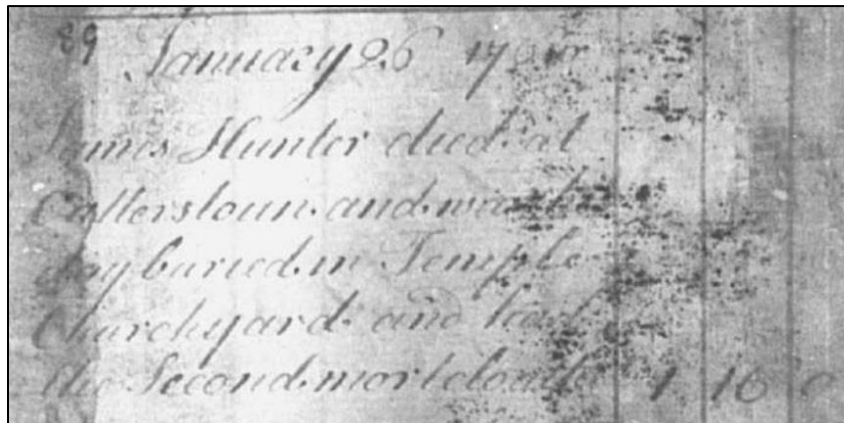 89 January 26
James Hunter died at
Catterstoun and was
day buried in Temple
Churchyard and had
the Second mortcloath 1 16 0